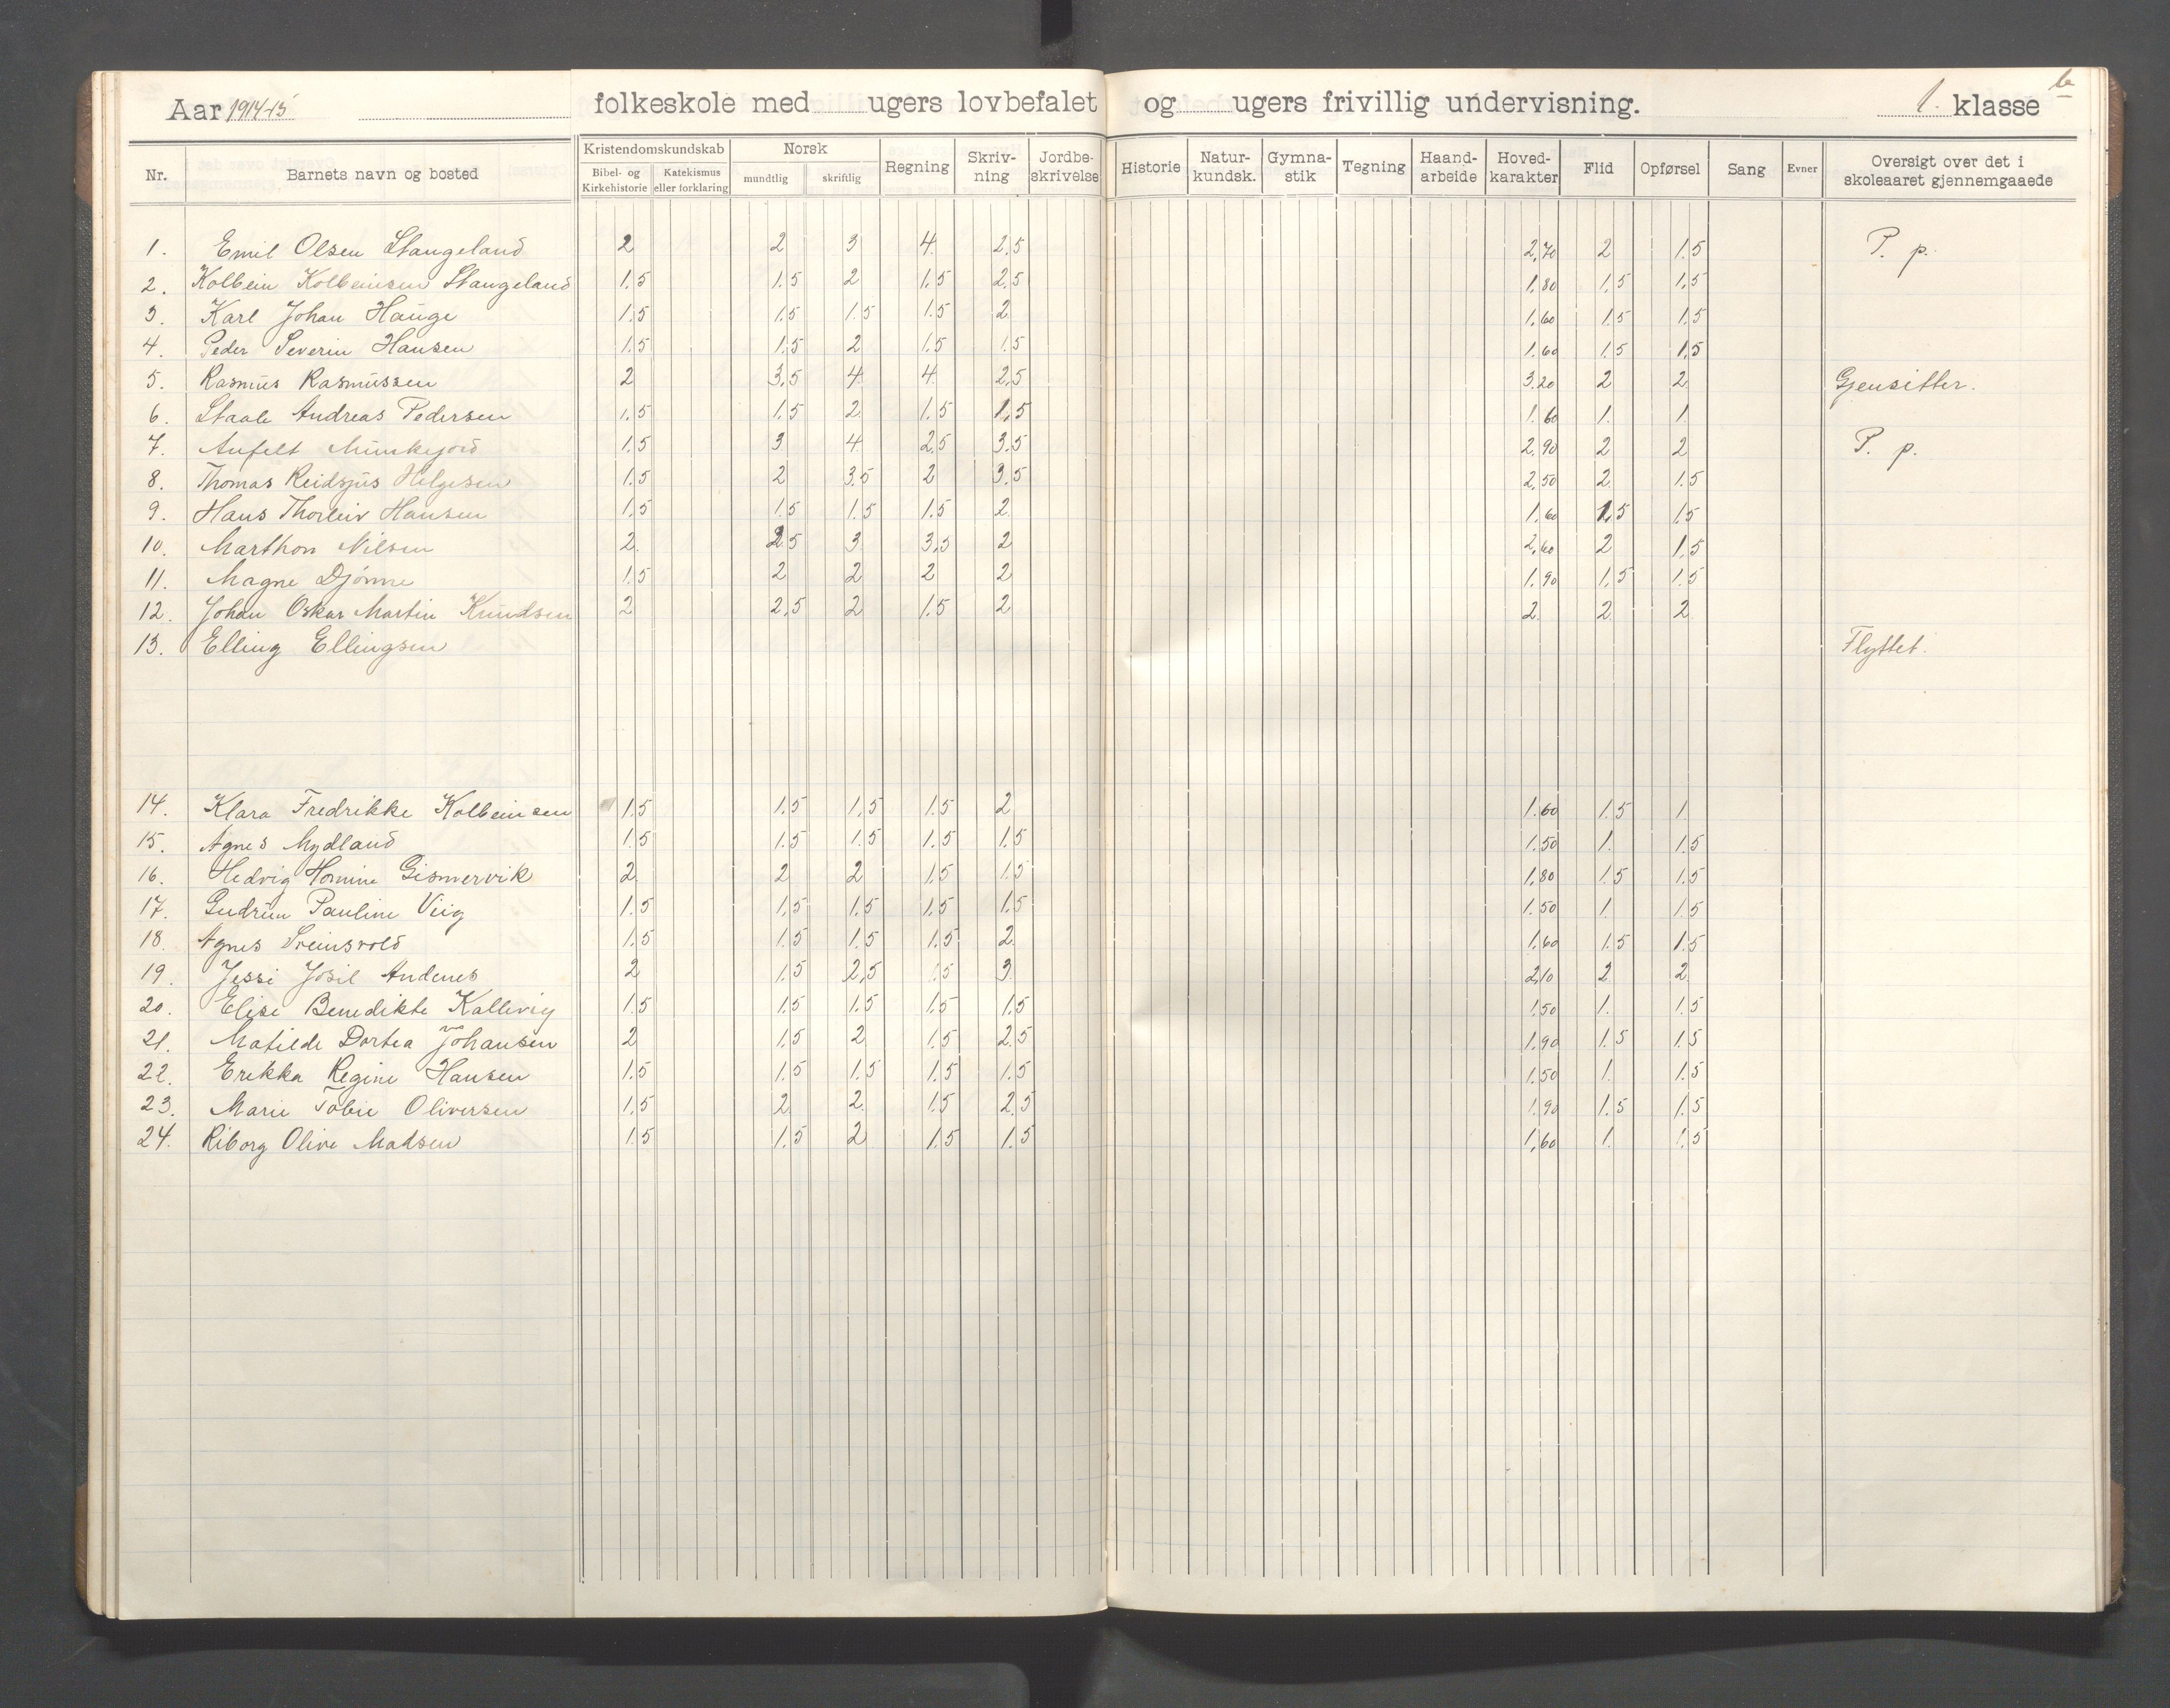 Aar 1914-15 folkeskole med ugers lovbefalet og ugers frivillig undervisning. 1. klasse b
Nr. Barnets navn og bosted Kristendomskundskab Bibel- og Kirkehistorie Katekismus eller forklaring Norsk mundtlig skriftlig Regning Skriv-ning Jordbe-skrivelse Historie Natur-kundsk. Gymna-stik Tegning Haand-arbeide Hoved-karakter Flid Opførsel Sang Evner Oversigt over det i skoleaaret gjennemgaaede
1. Emil Olsen Stangeland 2 2 3 4 2,5 2,70 2 1.5 P. p.
2. Kolbein Kolbeinsen Stangeland 1.5 1.5 2 1,5 2,5 1,80 1,5 1,5
3. Karl Johan Hauge 1.5 1.5 1.5 1.5 2 1,60 1.5 1.5
4. Peder Severin Hansen 1.5 1.5 2 1.5 1.5 1.60 1.5 1,5
5. Rasmus Rasmussen 2 3,5 4 4 2,5 3.20 2 2 Gjensitter.
6. Staale Andreas Pedersen 1.5 1.5 2 1.5 1,5 1.60 1. 1.
7. Anfelt Munkejord 1.5 3 4 2,5 3.5 2,90 2 2 P. p.
8. Thomas Reidsjus Helgesen 1.5 2 3,5 2 3.5 2,50 2 1.5
9. Hans Thorleiv Hansen 1,5 1.5 1.5 1.5 2 1,60 1,5 1.5
10. Marthon Nilsen 2 2.5 3 3,5 2 2,60 2 1,5
11. Magne Djønne 1.5 2 2 2 2 1.90 1,5 1.5
12. Johan Oskar Martin Knudsen 2 2,5 2 1.5 2 2 2 2
13. Elling Ellingsen Flyttet.
14. Klara Fredrikke Kolbeinsen 1.5 1.5 1,5 1.5 2 1.60 1.5 1
15. Agnes Mydland 1.5 1.5 1.5 1.5 1.5 1.50 1. 1.5
16. Hedvig Gismervik 2 2 2 1.5 1.5 1,80 1.5 1.5
17. Gudrun Pauline Viig 1.5 1.5 1.5 1.5 1.5 1.50 1. 1.5
18. Agnes Sveinsvold 1,5 1.5 1.5 1.5 2 1,60 1.5 1.5
19. Jessi Josil Andenes 2 1.5 2,5 1.5 3 2,10 2 2
20. Elise Benedikte Kallevig 1.5 1.5 1.5 1.5 1,5 1.50 1. 1.5
21. Matilde Dortea Johansen 2 1.5 2 1.5 2.5 1,90 1.5 1.5
22. Erikka Regine Hansen 1.5 1.5 1.5 1.5 1.5 1.50 1. 1.5
23. Marie Tobie Oliversen 1,5 2 2 1.5 2.5 1.90 1.5 1.5
24. Riborg Olive Madsen 1.5 1.5 2 1.5 1.5 1,60 1. 1.5